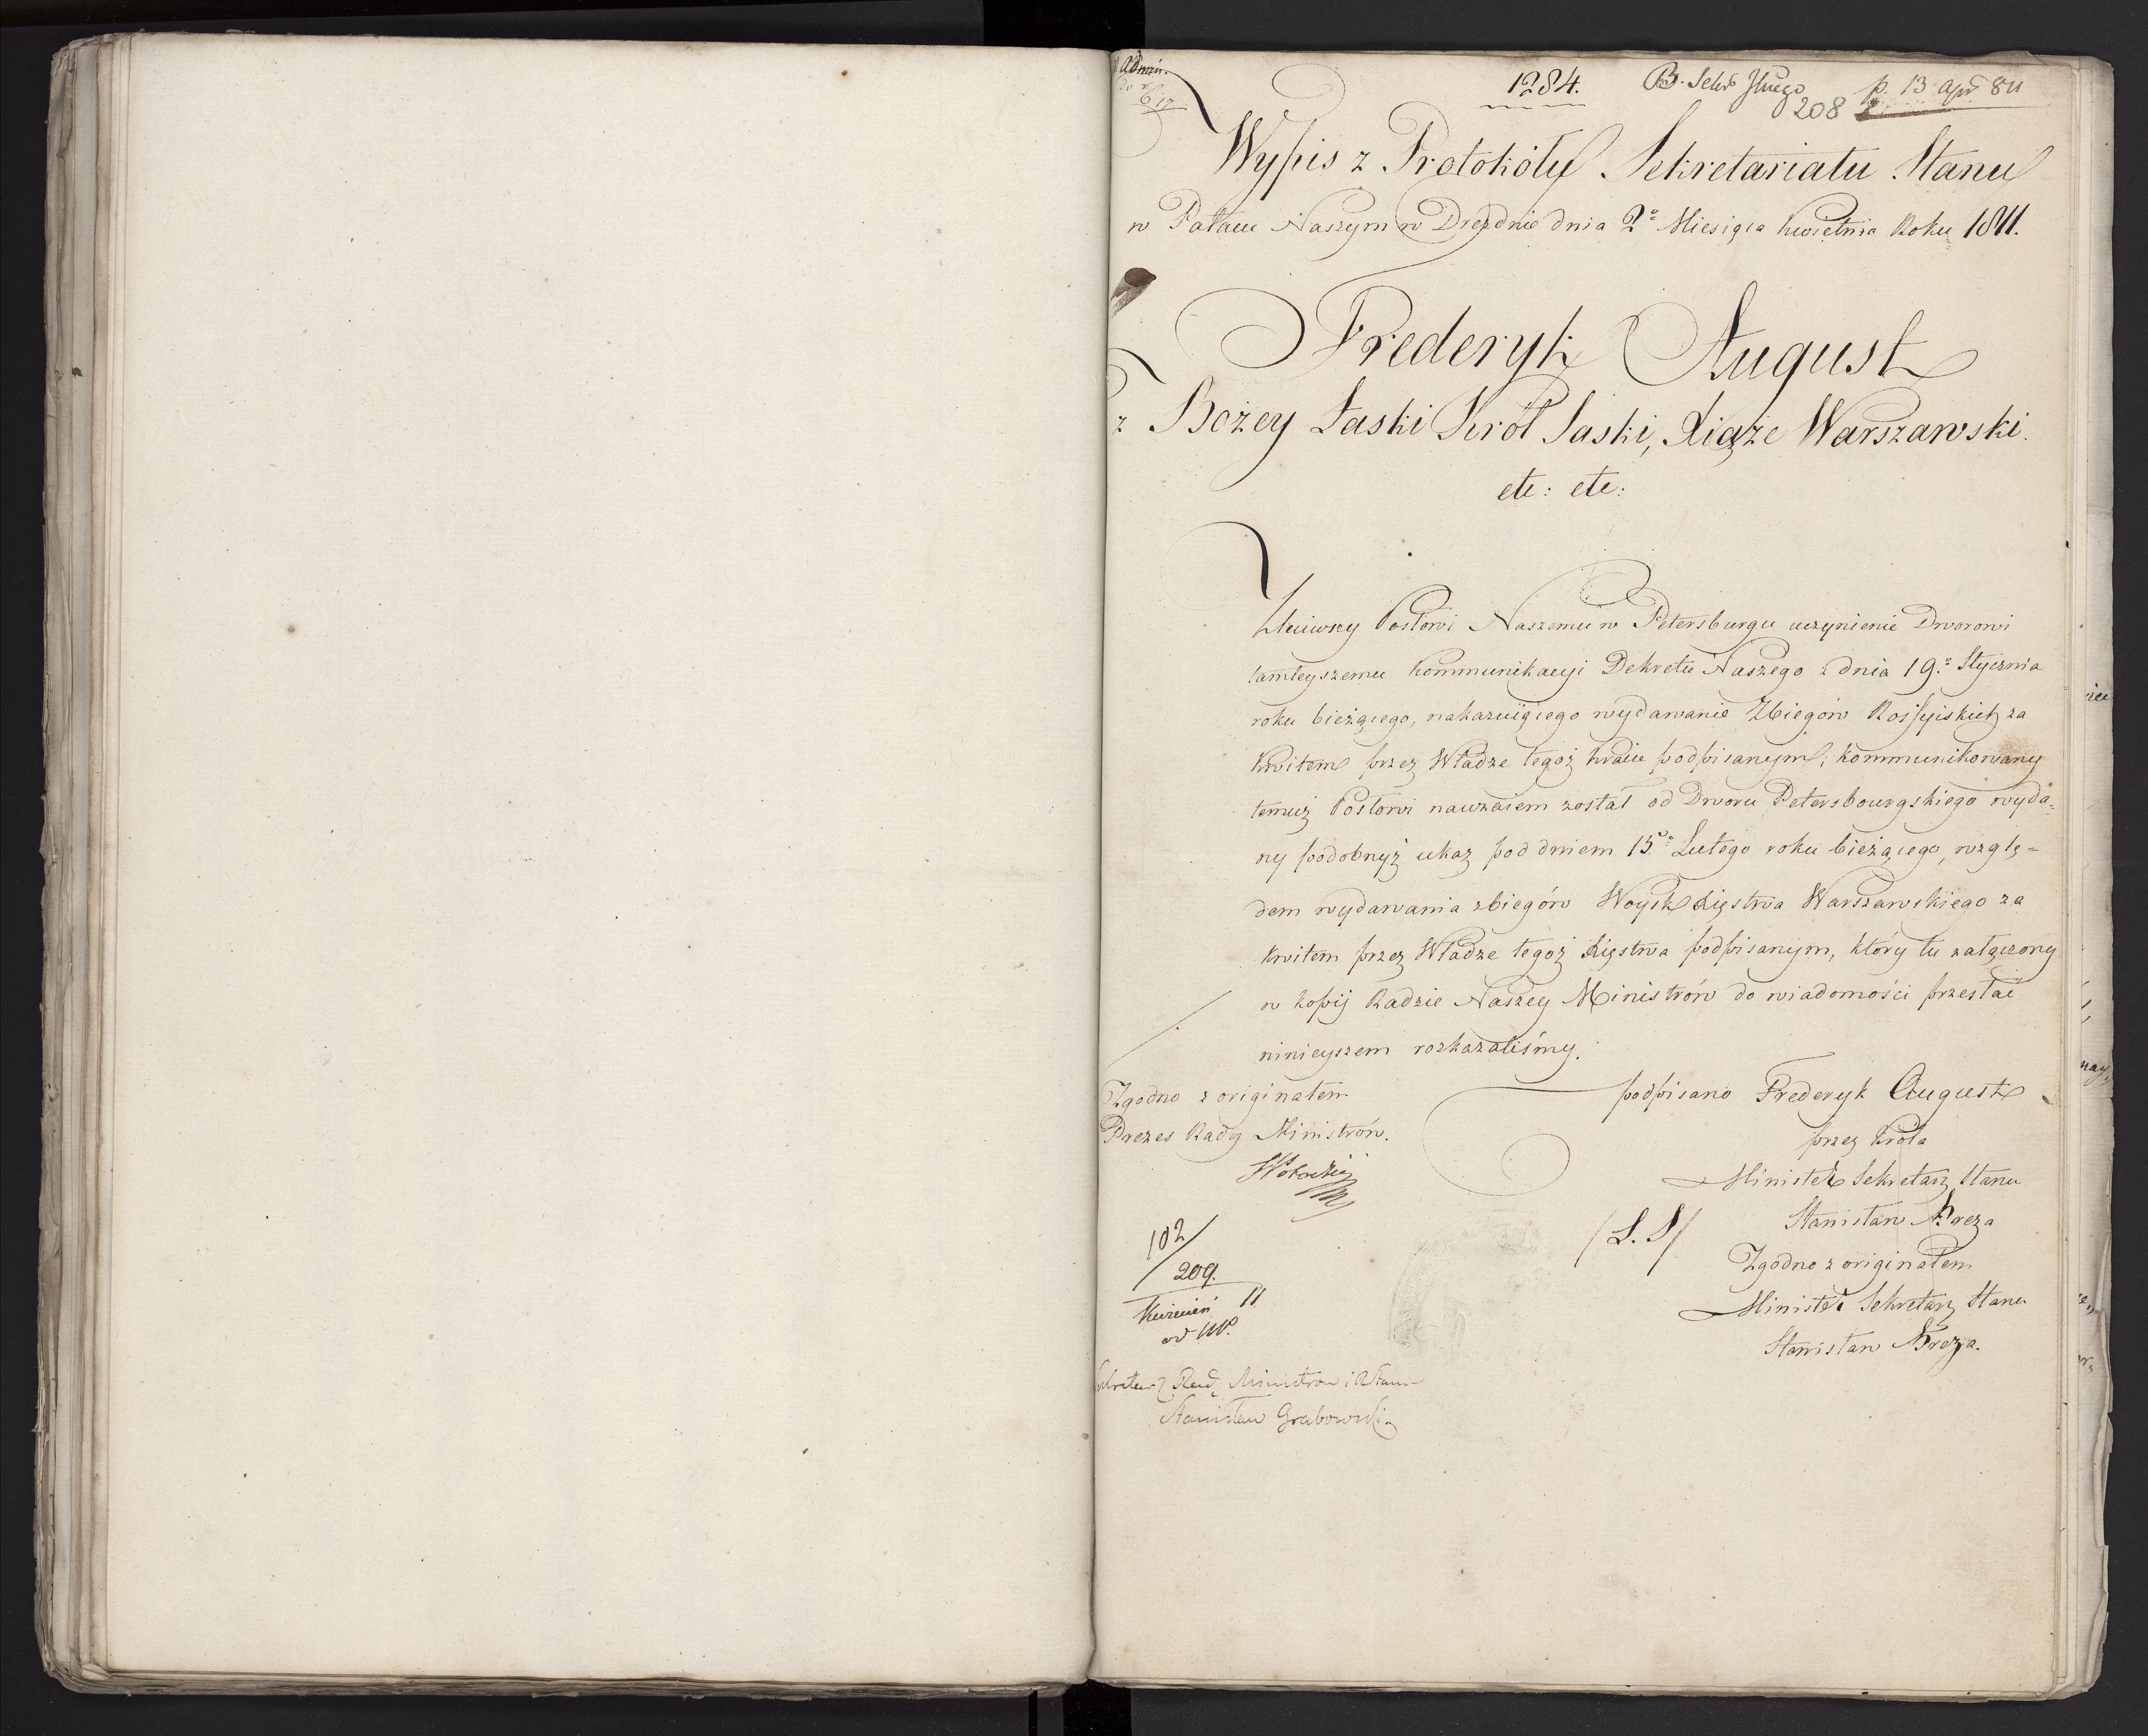 Admin.
1284.
208
p. 13 Apr 811
Wypis z Protokółu Sekretariatu Stanu
w Pałacu Naszym w Dreźdnie dnia 2º Miesiąca Kwietnia Roku 1811.
Frederyk August
z Bożey Łaski Król Saski, Xiąże Warszawski.
etc: etc:
Zleciwszy Posłowi Naszemu w Petersburgu uczynienie Dworowi
tamteyszemu kommunikacyi Dekretu Naszego z dnia 19º Stycznia
roku bieżącego, nakazuiącego wydawanie Zbiegów Rossyiskich za
kwitem przez Władze tegoż kraiu podpisanym; kommunikowany
temuż Posłowi nawzaiem został od Dworu Petersbourgskiego wyda-
ny podobnyż ukaz pod dniem 15º Lutego roku bieżącego, wzglę-
dem wydawania zbiegów Woysk Xięstwa Warszawskiego za
kwitem przez Władze tegoż Xięstwa podpisanym, który tu załączony
w kopij Radzie Naszey Ministrów do wiadomości przesłać
ninieyszem rozkazaliśmy.
Zgodno z originałem
Prezes Rady Ministrów.
podpisano Frederyk August
przez Króla
Minister Sekretarz Stanu
Stanisław Breza
/L.S/
Zgodno z originałem
Minister Sekretarz Stanu
Stanisław Breza.
102/
209.
Kwiecień 11
Sekretarz Rady Ministrów i Stanu
Stanisław Grabowski